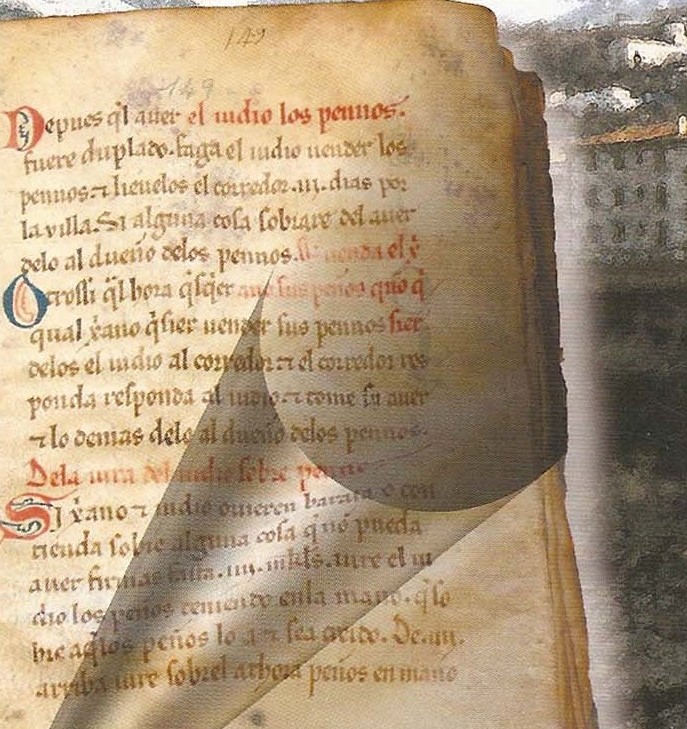 149
149
Depues q̃l auer el iudio los pennos.
fuere duplado. faga el iudio uender los
pennos. ⁊ lieuelos el corredor .iii. dias por
la villa. Si alguna cosa sobrare del auer
delo al dueño delos pennos. uenda el x̃
Otrossi q̃l hora q̃ sus peños
qual x̃ano q̃sier uender sus pennos fier
delos el iudio al corredor ⁊ el corredor res
ponda responda al iudio ⁊ tome su auer
⁊ lo demas delo al dueño delos pennos.
Dela iura del iudio sobre
Si x̃ano ⁊ iudio ouieren baraia o con
tienda sobre alguna cosa q̃ nõ pueda
auer firmas iure el iu
dio los peños teniendo enla mano. q̃ so
bre aq̃los peños lo a
arriba iure sobrel athora peños en mano